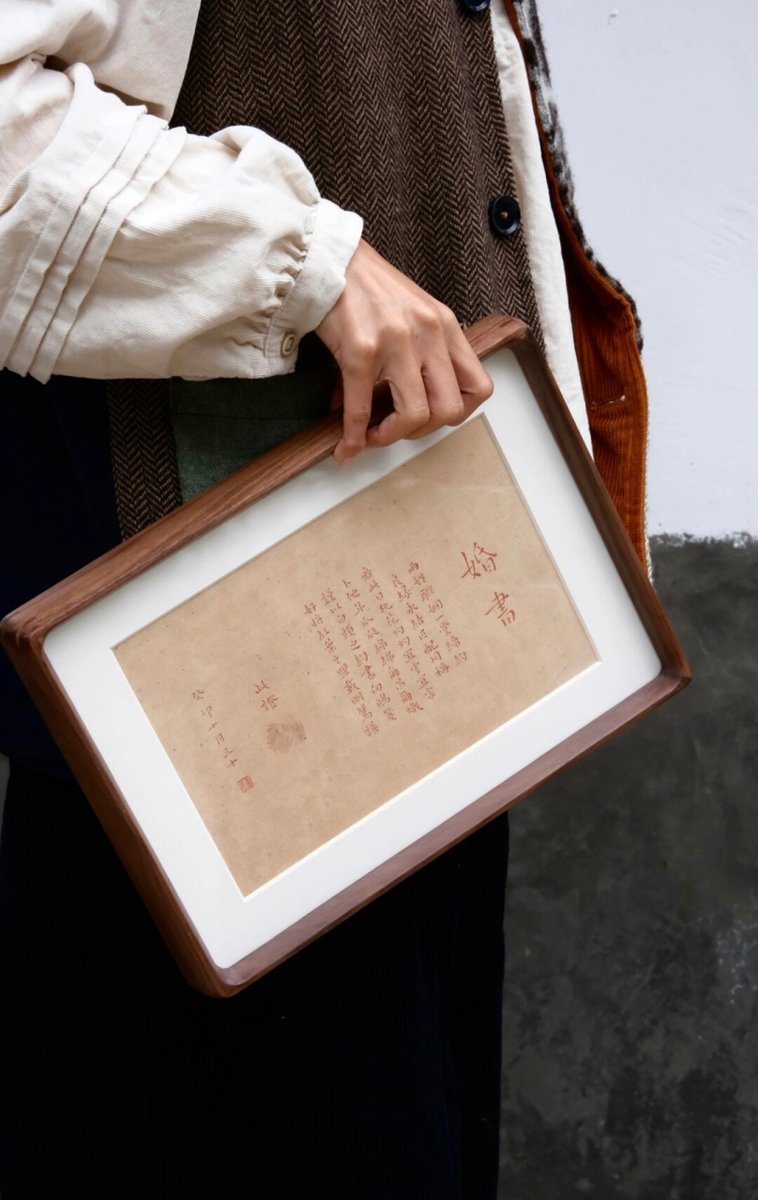 婚書
兩姓聯姻一堂締約
良緣永結匹配同稱
看此日桃花灼灼宜室宜家
卜他年瓜瓞綿綿爾昌爾熾
謹以白頭之約書向鴻箋
好將紅葉之盟載明鴛譜
此證
癸卯十月三十